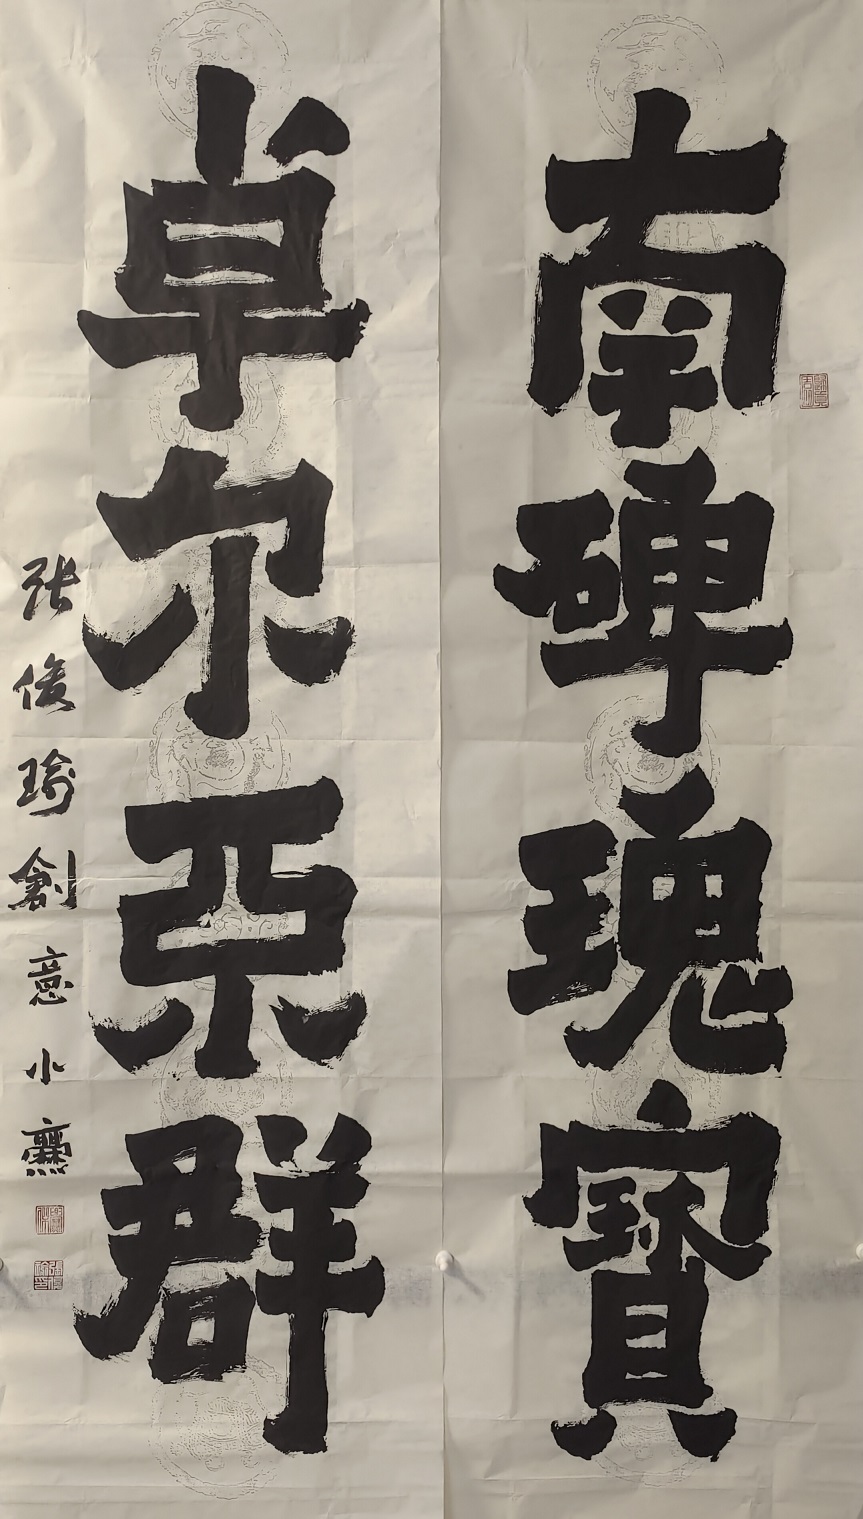 南碑瑰寶
卓尔不群
张俊瑜創意小爨